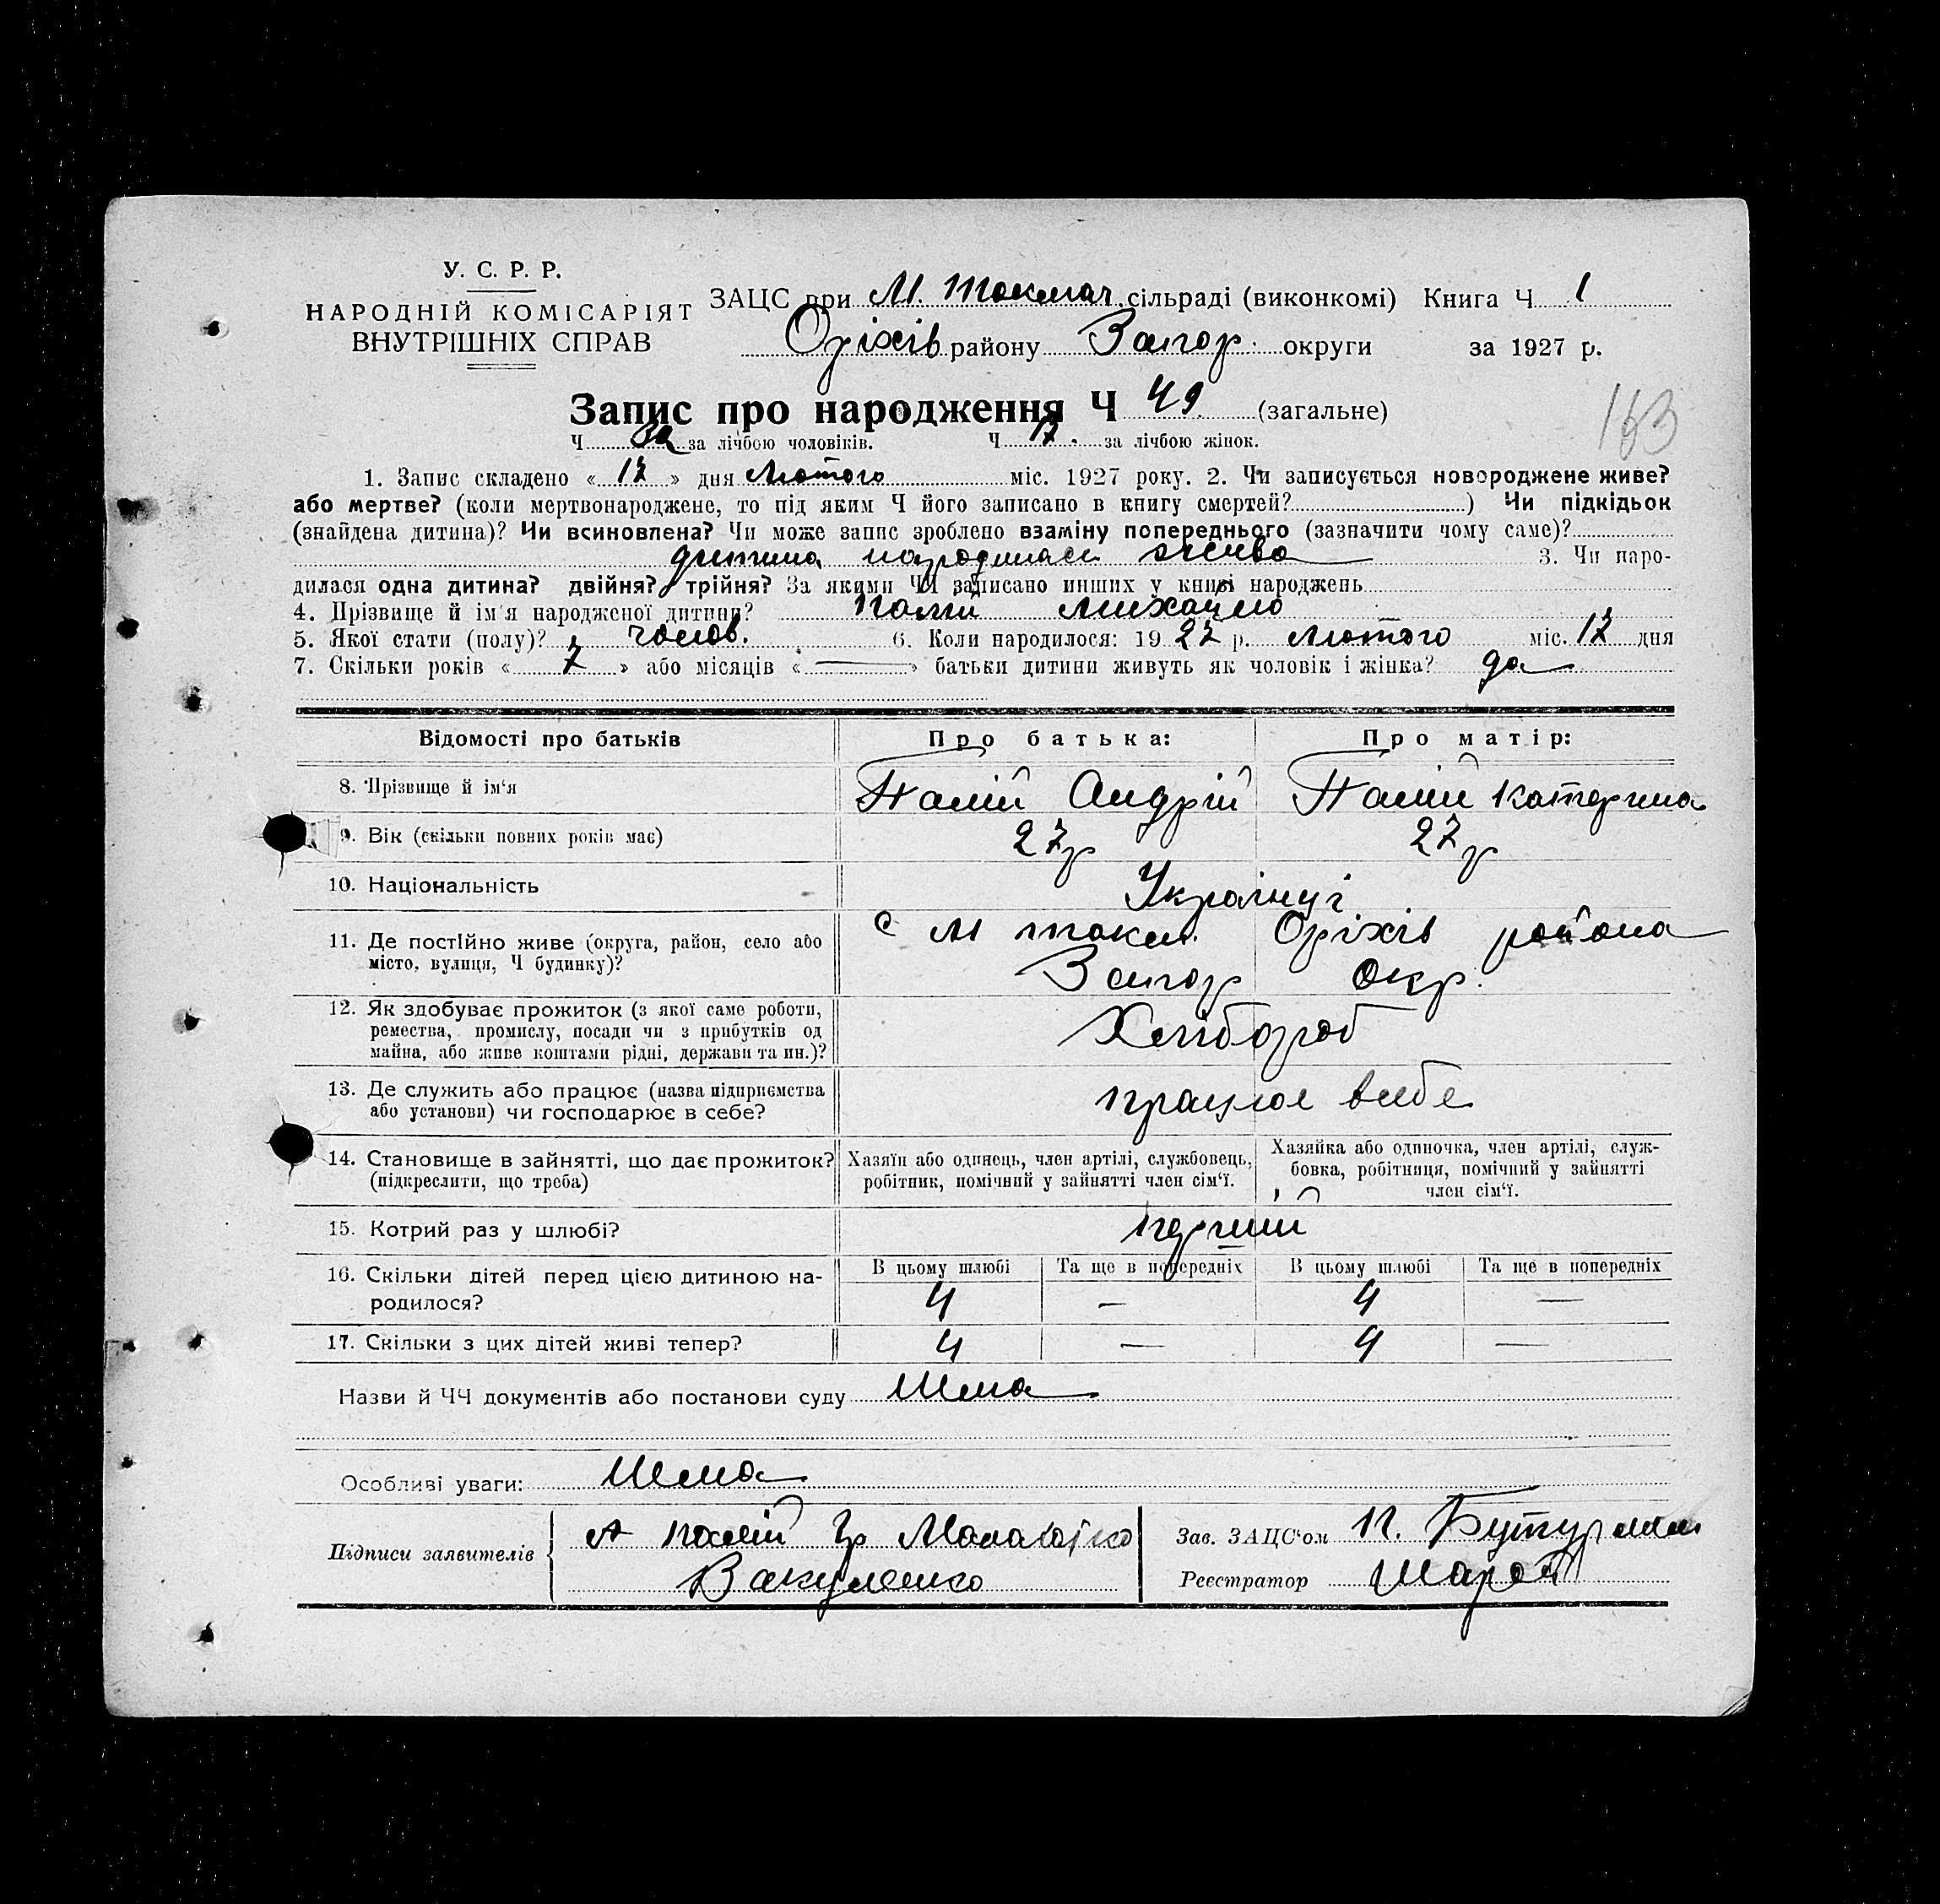 У. С. Р. Р.
НАРОДНІЙ КОМІСАРІЯТ
ВНУТРІШНІХ СПРАВ
ЗАЦС при М. Токмач. сільраді (виконкомі) Книга Ч 1
Оріхів району Запор. округи за 1927 р.
Запис про народження Ч 49 (загальне)
163
Ч 32 за лічбою чоловіків. Ч 17. за лічбою жінок.
1. Запис складено « 17 » дня Лютого міс. 1927 року. 2. Чи записується новороджене живе?
або мертве? (коли мертвонароджене, то під яким Ч його записано в книгу смертей?) Чи підкідьок
(знайдена дитина)? Чи всиновлена? Чи може запис зроблено взаміну попереднього (зазначити чому саме)?
дитина народилась жива 3. Чи наро-
дилася одна дитина? двійня? трійня? За якими ЧЧ записано инших у книзі народжень
4. Прізвище й ім'я народженої дитини? Палій Михайло
5. Якої стати (полу)? чолов. 6. Коли народилося: 1927 р. Лютого міс. 17 дня
7. Скільки років « 7 » або місяців « — » батьки дитини живуть як чоловік і жінка? да
Відомості про батьків Про батька: Про матір:
8. Прізвище й ім'я Палій Андрій Палій Катерина
9. Вік (скільки повних років має) 27 р 27 р
10. Національність Українці
11. Де постійно живе (округа, район, село або місто, вулиця, Ч будинку)? с М токм. Оріхів района
Запор окр.
12. Як здобуває прожиток (з якої саме роботи, ремества, промислу, посади чи з прибутків од майна, або живе коштами рідні, держави та ин.)? Хлібороб
13. Де служить або працює (назва підприємства або установи) чи господарює в себе? працює всебе
14. Становище в зайнятті, що дає прожиток? (підкреслити, що треба)
Хазяїн або одинець, член артілі, службовець, робітник, помічний у зайнятті член сім'ї.
Хазяйка або одиночка, член артілі, служ-
бовка, робітниця, помічний у зайнятті
член сім'ї.
15. Котрий раз у шлюбі? перший
16. Скільки дітей перед цією дитиною на-
родилося?
В цьому шлюбі Та ще в попередніх В цьому шлюбі Та ще в попередніх
4 — 4 —
17. Скільки з цих дітей живі тепер? 4 — 4 —
Назви й ЧЧ документів або постанови суду Нема
Особливі уваги: Нема
Підписи заявителів А Палій Гр
Вакуленко
Зав. ЗАЦС'ом П.
Реєстратор